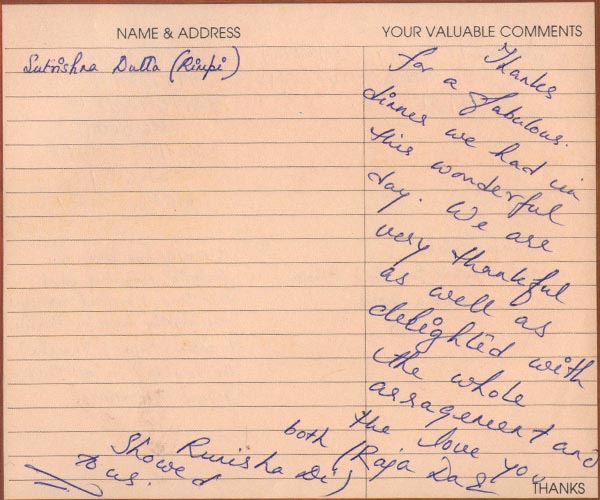 NAME & ADDRESS
YOUR VALUABLE COMMENTS
Sutrishna Dutta (Rinpi)
Thanks
for a fabulous.
dinner we had in
this wonderful
day. We are
very thankful
as well as
delighted with
the whole
arragement and
the love you
both (Raja Da &
Runisha Di)
Showed
to us.
THANKS